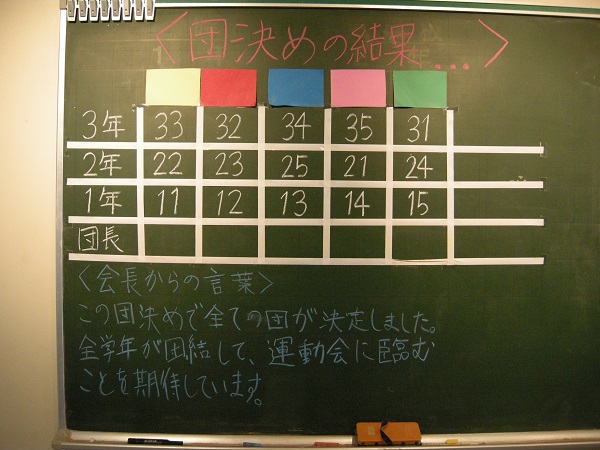 〈団決めの結果…〉
3年 33 32 34 35 31
2年 22 23 25 21 24
1年 11 12 13 14 15
団長
〈会長からの言葉〉
この団決めで全ての団が決定しました。
全学年が団結して、運動会に臨む
ことを期待しています。